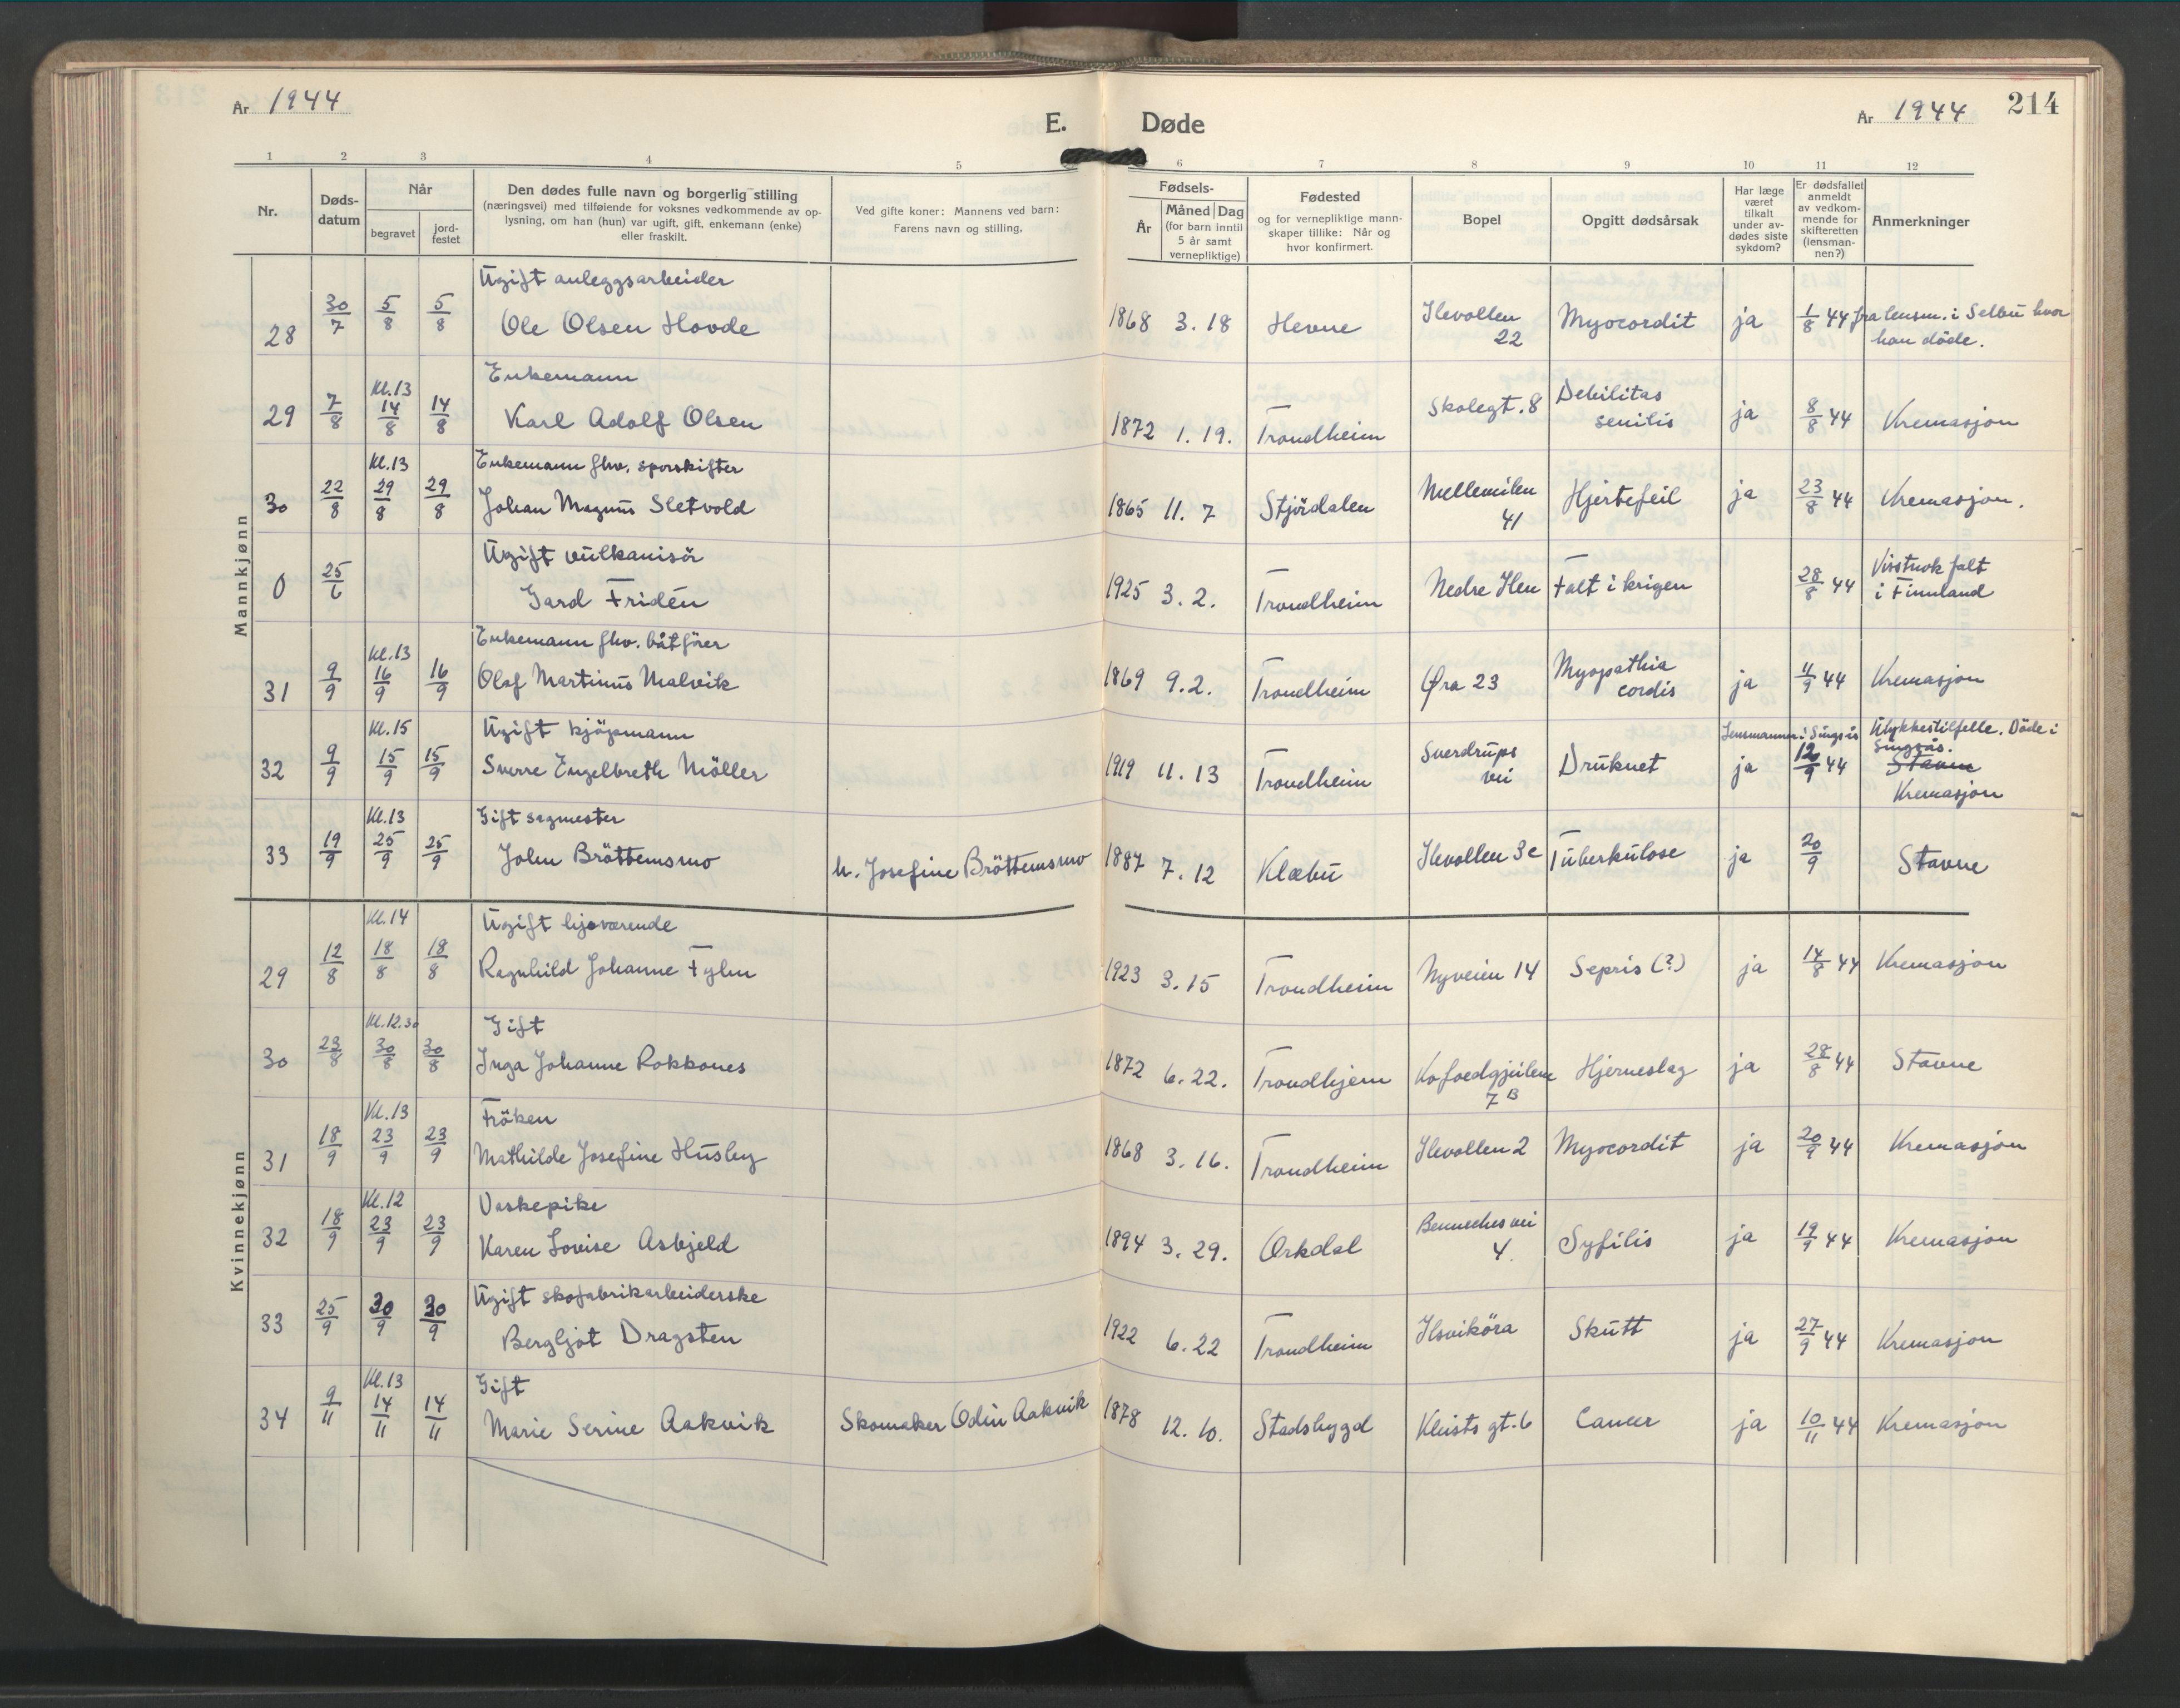 År 1944
E. Døde
År 1944
214
1 2 3 4 5 6 7 8 9 10 11 12
Nr.
Dødsdatum
Når
begravet
jordfestet
Den dødes fulle navn og borgerlig stilling
(næringsvei) med tilføiende for voksnes vedkommende av op-
lysning, om han (hun) var ugift, gift, enkemann (enke)
eller fraskilt.
Ved gifte koner: Mannens ved barn:
Farens navn og stilling,
Fødsels-
År
Måned Dag
(for barn inntil
5 år samt
vernepliktige)
Fødested
og for vernepliktige mann-
skaper tillike: Når og
hvor konfirmert.
Bopel
Opgitt dødsårsak
Har læge
været
tilkalt
under av-
dødes siste
sykdom?
Er dødsfallet
anmeldt
av vedkom-
mende for
skifteretten
(lensman-
nen?)
Anmerkninger
Mannkjønn
Ugift anleggsarbeider
28 30/7 5/8 5/8 Ole Olsen Hovde 1868 3. 18 Hevne Ilevollen 22 Myocordit ja 1/8 44 fra lensm. i Selbu hvor
han døde.
Enkemann
29 7/8 Kl. 13 14/8 14/8 Karl Adolf Olsen 1872 1. 19. Trondheim Skolegt. 8 Debilitas senilis ja 8/8 44 Kremasjon
Enkemann fhv. sporskifter
30 22/8 Kl. 13 29/8 29/8 Johan Magnus Sletvold 1865 11. 7 Stjördalen Mellemilen 41 Hjertefeil ja 23/8 44 Kremasjon.
Ugift vulkanisör
0 25/6 Gard Fridén 1925 3. 2. Trondheim Nedre Ilen Falt i krigen 28/8 44 Visstnok falt
i Finnland
Enkemann fhv. båtförer
31 9/9 Kl. 13 16/9 16/9 Olaf Martinus Malvik 1869 9. 2. Trondheim Øra 23 Myopathia cordis ja 11/9 44 Kremasjon
Ugift kjöpmann
32 9/9 Kl. 15 15/9 15/9 Sverre Engelbreth Möller 1919 11. 13 Trondheim Sverdrups vei Druknet Lensmannen i Singsås ja 12/9 44 Ulykkestilfelle. Döde i
Singsås.
Stavne
Kremasjon
Gift sagmester
33 19/9 Kl. 13 25/9 25/9 John Bröttemsmo h. Josefine Bröttemsmo 1887 7. 12 Klæbu Ilevollen 3c Tuberkulose ja 20/9 Stavne
Kvinnekjønn
Ugift hjeværende
29 12/8 Kl. 14 18/8 18/8 Ragnhild Johanne Fylm 1923 3. 15 Trondheim Nyveien 14 Sepris (?) ja 14/8 44 Kremasjon
Gift
30 23/8 Kl. 12.30 30/8 30/8 Inga Johanne Rokkones 1872 6. 22. Trondhjem Kofoedgjeilene 7 B Hjerneslag ja 28/8 44 Stavne
Fröken
31 18/9 Kl. 13 23/9 23/9 Mathilde Josefine Husby 1868 3. 16. Trondheim Ilevollen 2 Myocordit ja 20/9 44 Kremasjon
Vaskepike
32 18/9 Kl. 12 23/9 23/9 Karen Lovise Asbjeld 1894 3. 29. Orkdal Bennechesvei 4. Syfilis ja 19/9 44 Kremasjon
Ugift skofabrikarbeiderske
33 25/9 30/9 30/9 Bergljot Dragsten 1922 6. 22 Trondheim Ilsviköra Skutt ja 27/9 44 Kremasjon
Gift
34 9/11 Kl. 13 14/11 14/11 Marie Serine Aakvik Skomaker Odin Aakvik 1878 12. 10. Stadsbygd Kleists gt. 6 Cancer ja 10/11 44 Kremasjon